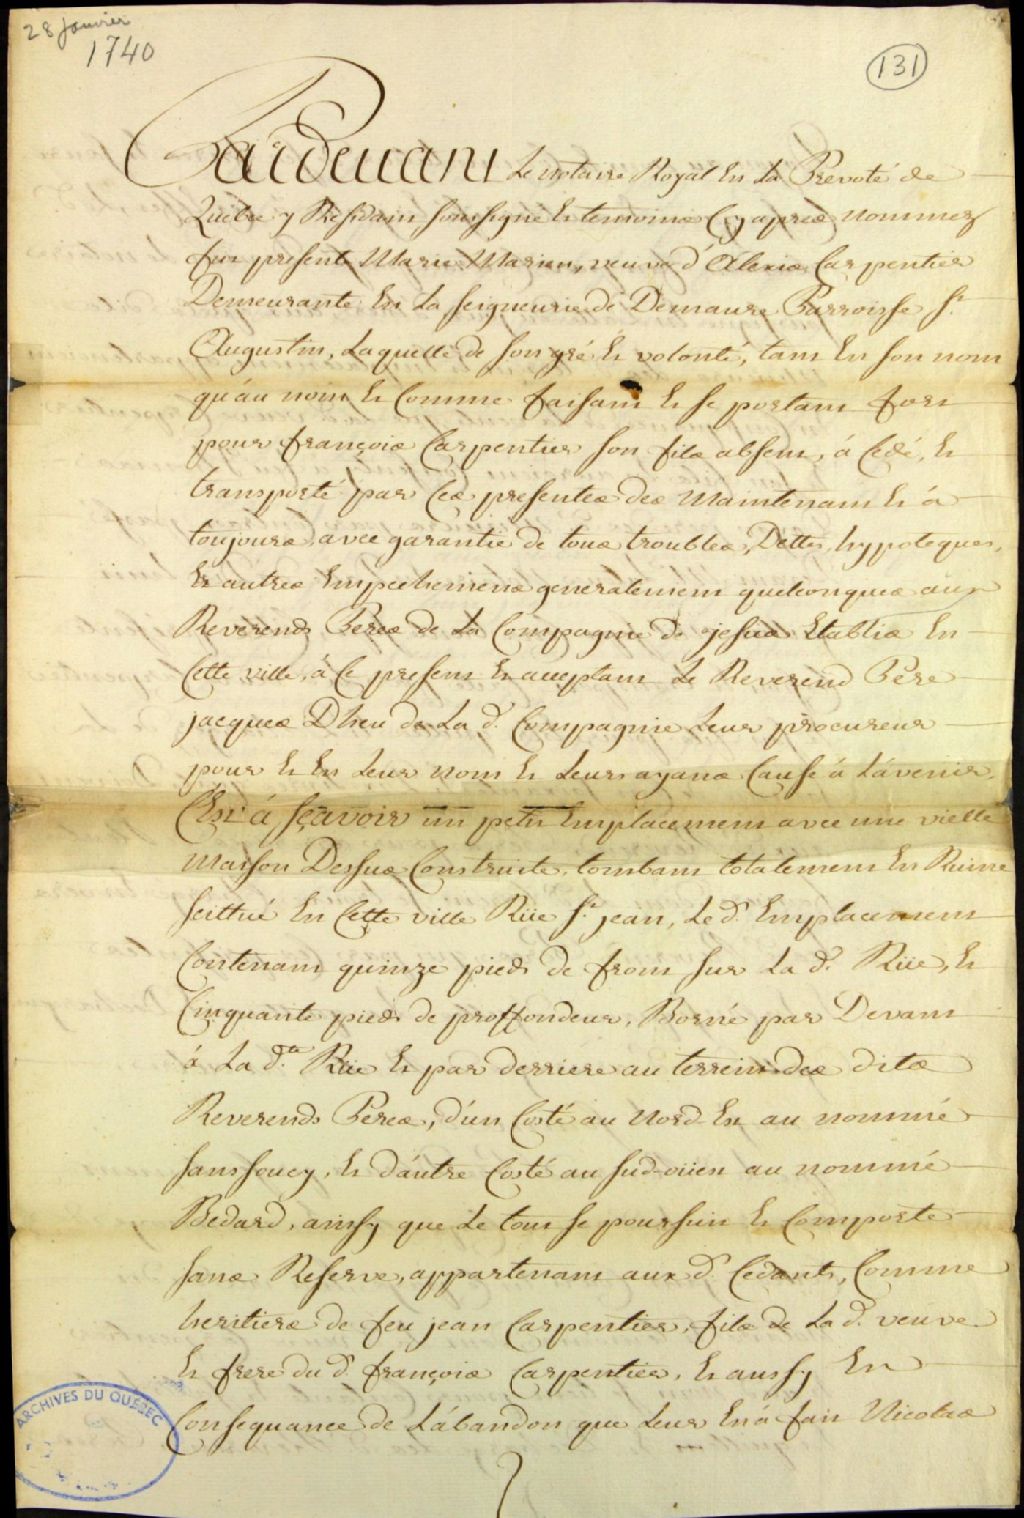 28 janvier
1740
131
Pardevant Le notaire Royal En La Prevoté de
Québec y Residant soussigné Et temoins Cy aprés nommez
fut presente Marie Marien, veuve d'Alexis Carpentier
Demeurante En La seigneurie de Demaure Parroisse St.
Augustin, Laquelle de son gré Et volonté, tant En son nom
qu'au nom Et Comme faisant Et se portant fort
pour françois Carpentier son fils absent, à Cedé, Et
transporté par Ces presentes des Maintenant Et á
toujours, avec garantie de tous troubles, Dettes, hypoteques,
Et autres Empechemens generalement quelconques aux
Reverends Peres de La Compagnie de jesus Etablis En
Cette ville, á Ce present Et acceptant Le Reverend Pére
jacques Dheu de La d. Compagnie Leur procureur
pour Et En Leur nom Et Leurs ayans Cause á L'avenir.
C'Est á sçavoir un petit Emplacement avec une vielle
Maison Dessus Construite, tombant totalement En Ruine
scittué En Cette ville Rüe St. jean, Le d. Emplacement
Contenant quinze pieds de front sur La d. Rüe, Et
Cinquante pieds de proffondeur, Borné par Devant
á La d.te Rüe Et par derriere au terrein des dits
Reverends Peres, d'un Costé au Nord Est au nommé
sanssoucy, Et d'autre Costé au sud-oüest au nommé
Bedard, ainsy que Le tout se poursuit Et Comporte
sans Reserve, appartenant aux d. Cedants, Comme
heritiers de feu jean Carpentier, fils de La d. veuve
Et frere du d. françois Carpentier, Et aussy En
Consequance de L'abandon que Leur En á fait Nicolas
ARCHIVES DU QUÉBEC